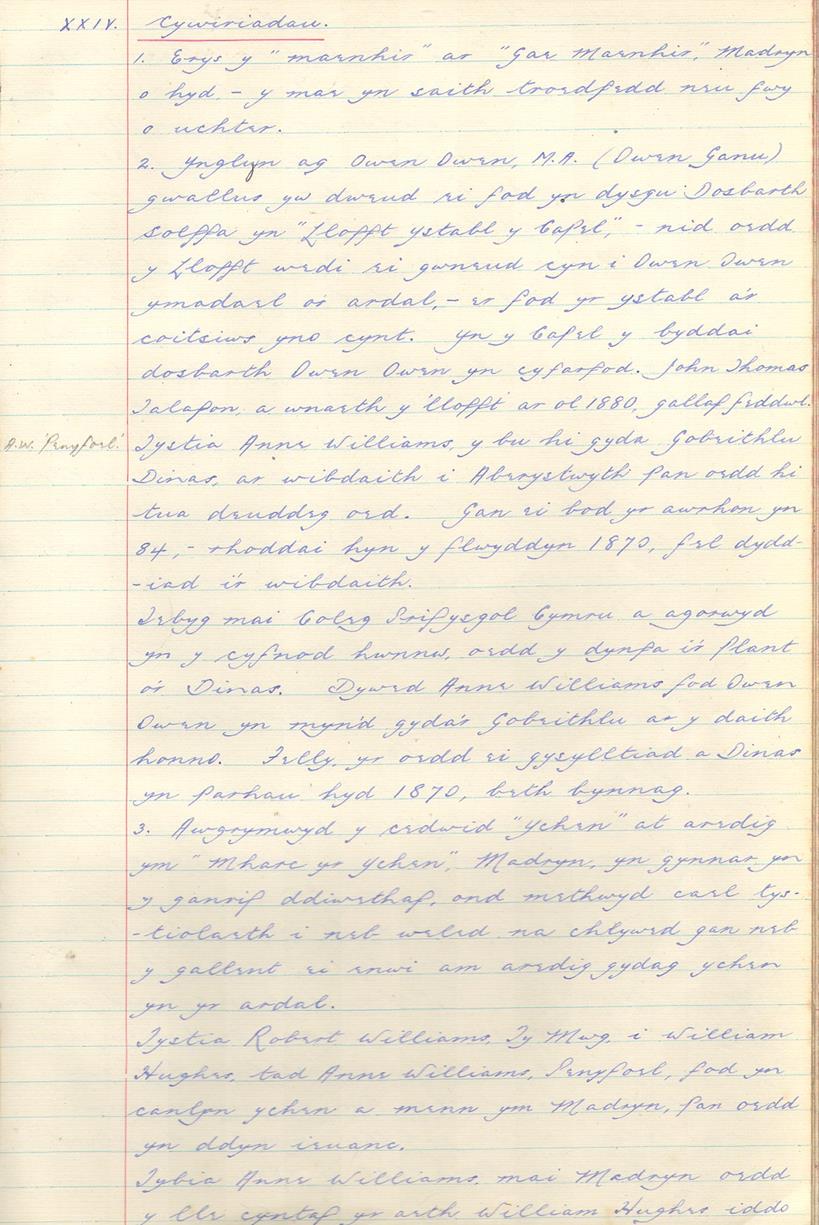 XXIV. Cywiriadau.
1. Erys y "maenhir" ar "Gae Maenhir", Madryn
o hyd, - y mae yn saith troedfedd neu fwy
o uchter.
2. Ynglyn ag Owen Owen, M.A. (Owen Ganu)
gwallus yw dweud ei fod yn dysgu Dosbarth
Solffa yn "Llofft ystabl y Capel", - nid oedd
y Llofft wedi ei gwneud cyn i Owen Owen
ymadael o'r ardal, - er fod yr ystabl a'r
coitsiws yno cynt. Yn y Capel y byddai
dosbarth Owen Owen yn cyfarfod. John Thomas
Talafon, a wnaeth y 'llofft' ar ol 1880, gallaf feddwl.
A.W. 'Penyfoel.'
Tystia Anne Williams, y bu hi gyda Gobeithlu
Dinas, ar wibdaith i Aberystwyth pan oedd hi
tua deuddeg oed. Gan ei bod yr awrhon yn
84, - rhoddai hyn y flwyddyn 1870, fel dydd-
-iad i'r wibdaith.
Tebyg mai Coleg Prifysgol Cymru a agorwyd
yn y cyfnod hwnnw, oedd y dynfa i'r Plant
o'r Dinas. Dywed Anne Williams fod Owen
Owen yn myn'd gyda'r Gobeithlu ar y daith
honno. Felly, yr oedd ei gysylltiad a Dinas
yn parhau hyd 1870, beth bynnag.
3. Awgrymwyd y cedwid "Ychen" at aredig
ym "Mharc yr Ychen", Madryn, yn gynnar yn
y ganrif ddiwethaf, ond methwyd cael tys-
-tiolaeth i neb weled na chlywed gan neb
y gallent ei enwi am aredig gydag ychen
yn yr ardal.
Tystia Robert Williams, Ty Mwg, i William
Hughes, tad Anne Williams, Penyfoel, fod yn
canlyn ychen a menn ym Madryn, pan oedd
yn ddyn ieuanc.
Tybia Anne Williams, mai Madryn oedd
y lle cyntaf yr aeth William Hughes iddo